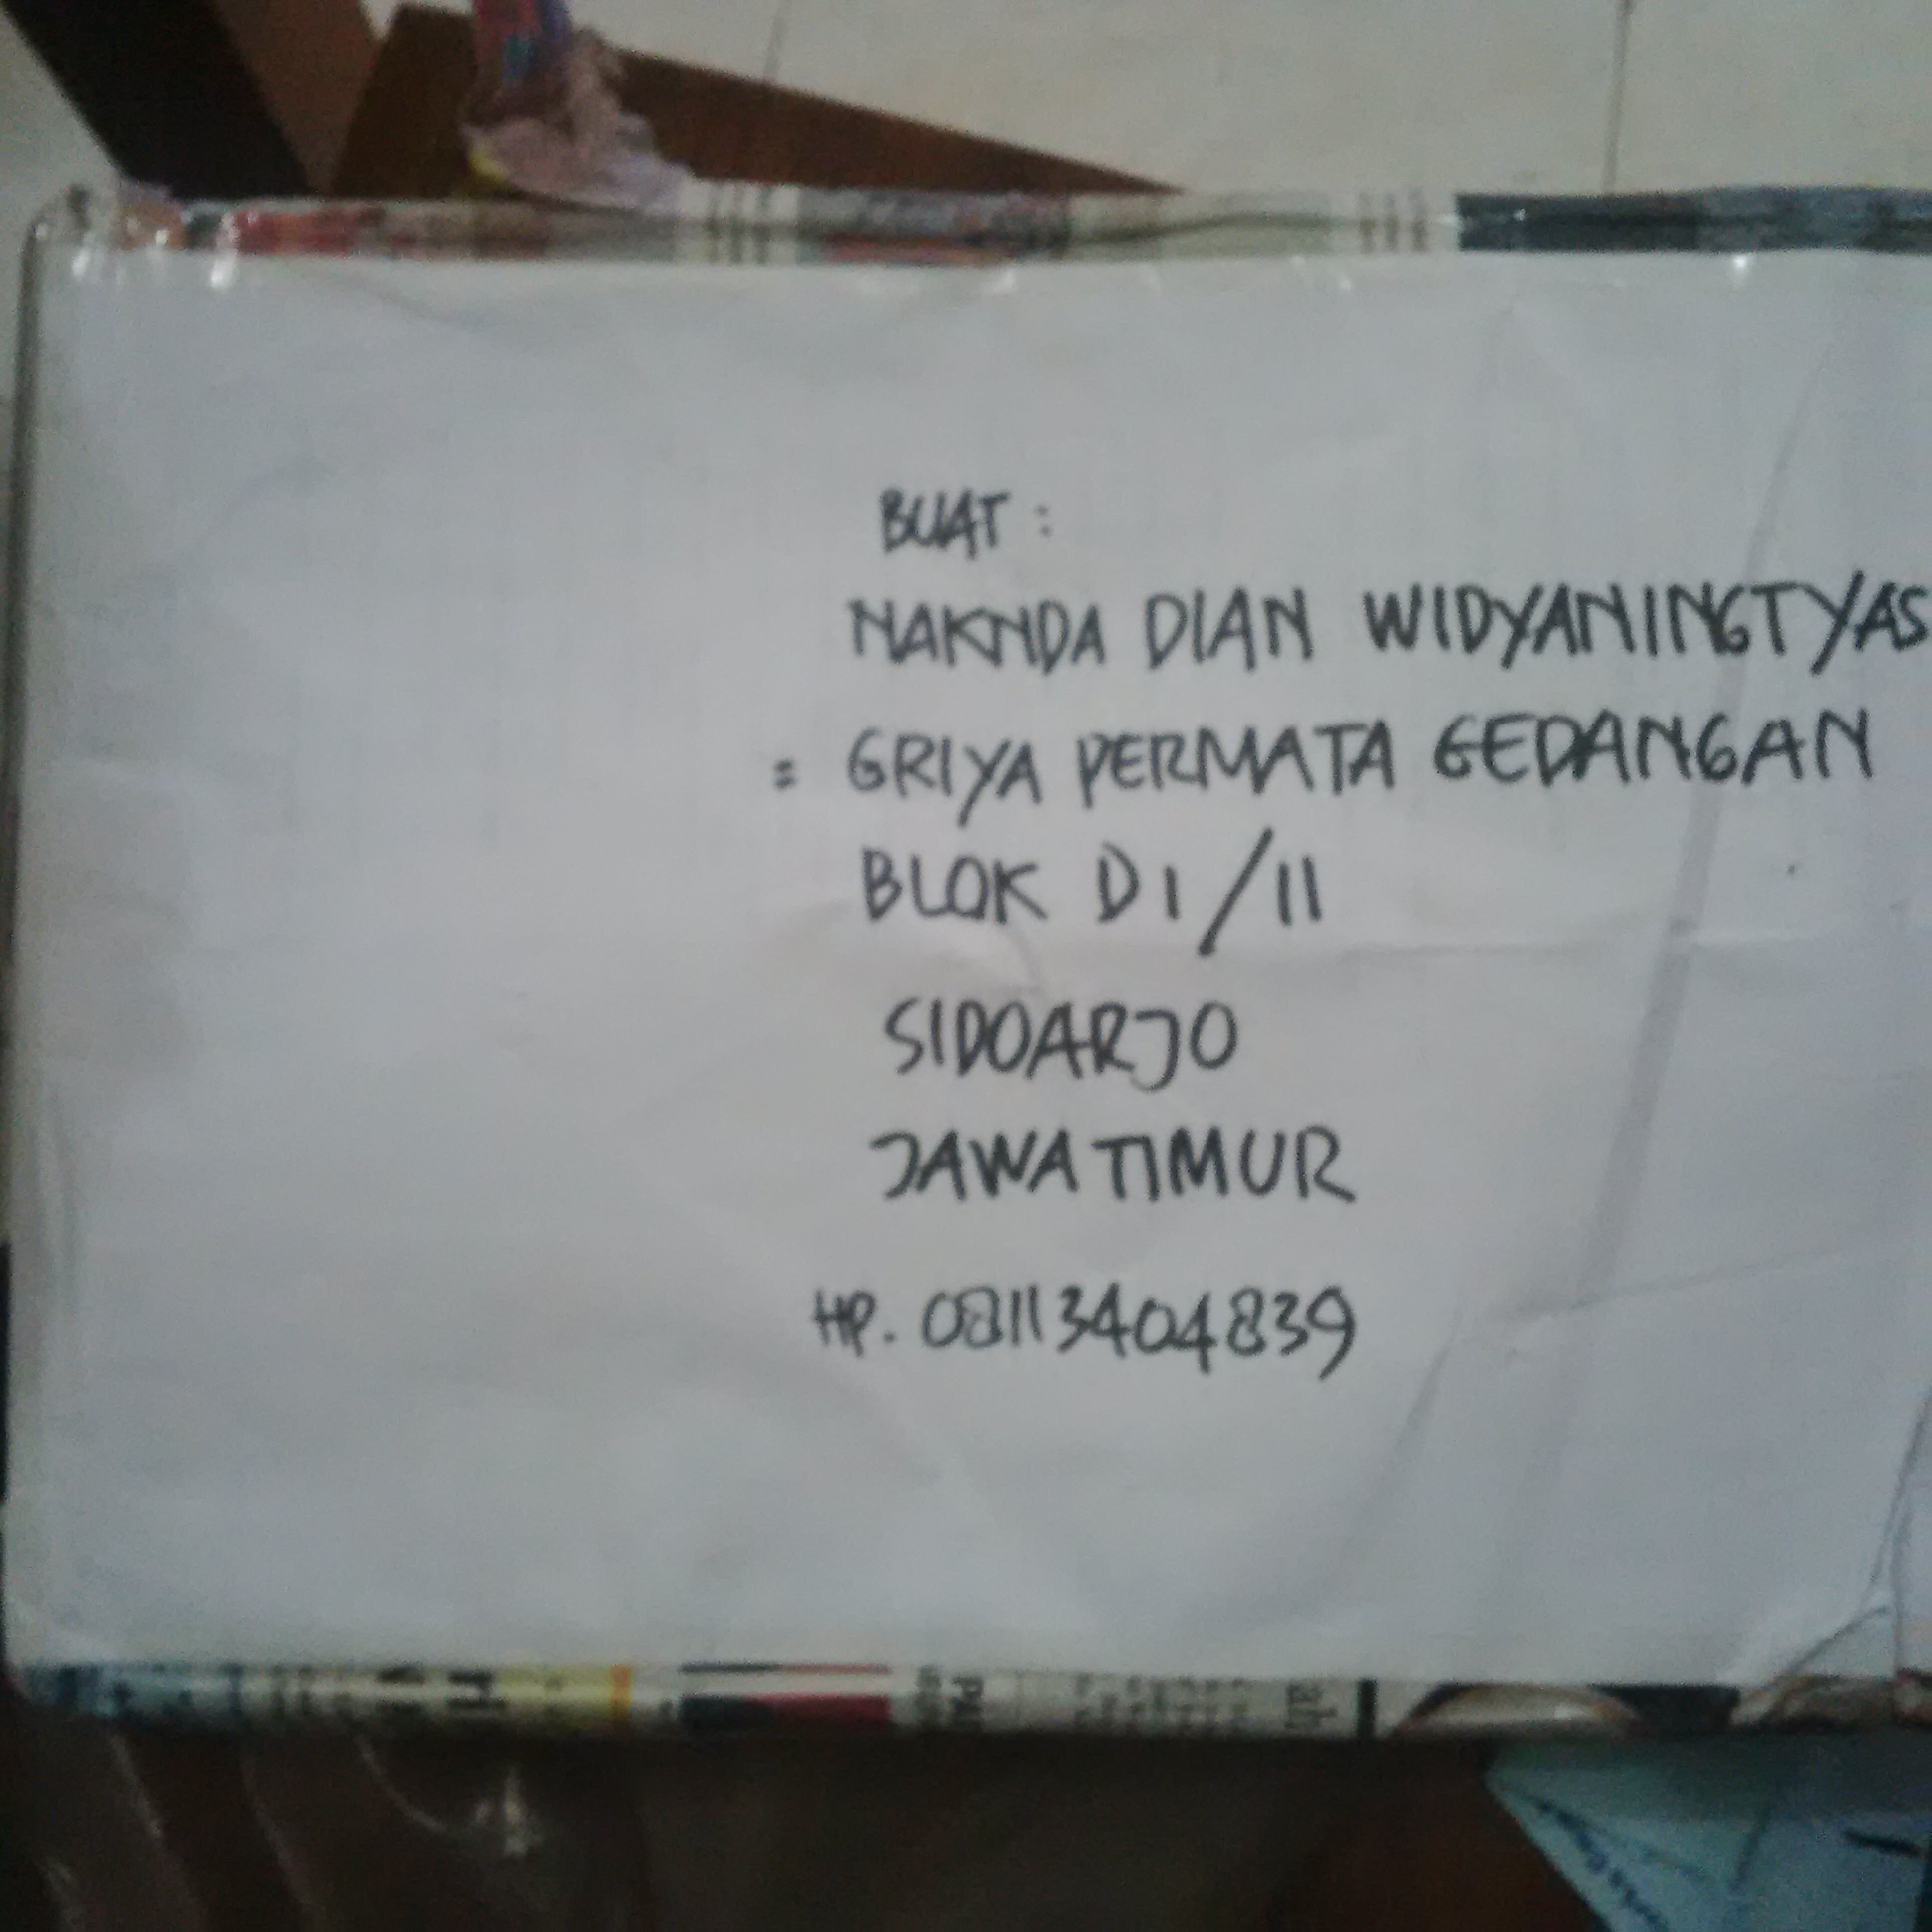 BUAT :
NAKNDA DIAN WIDYANINGTYAS
= GRIYA PERMATA GEDANGAN
BLOK D1/11
SIDOARJO
JAWA TIMUR
HP. 08113404839